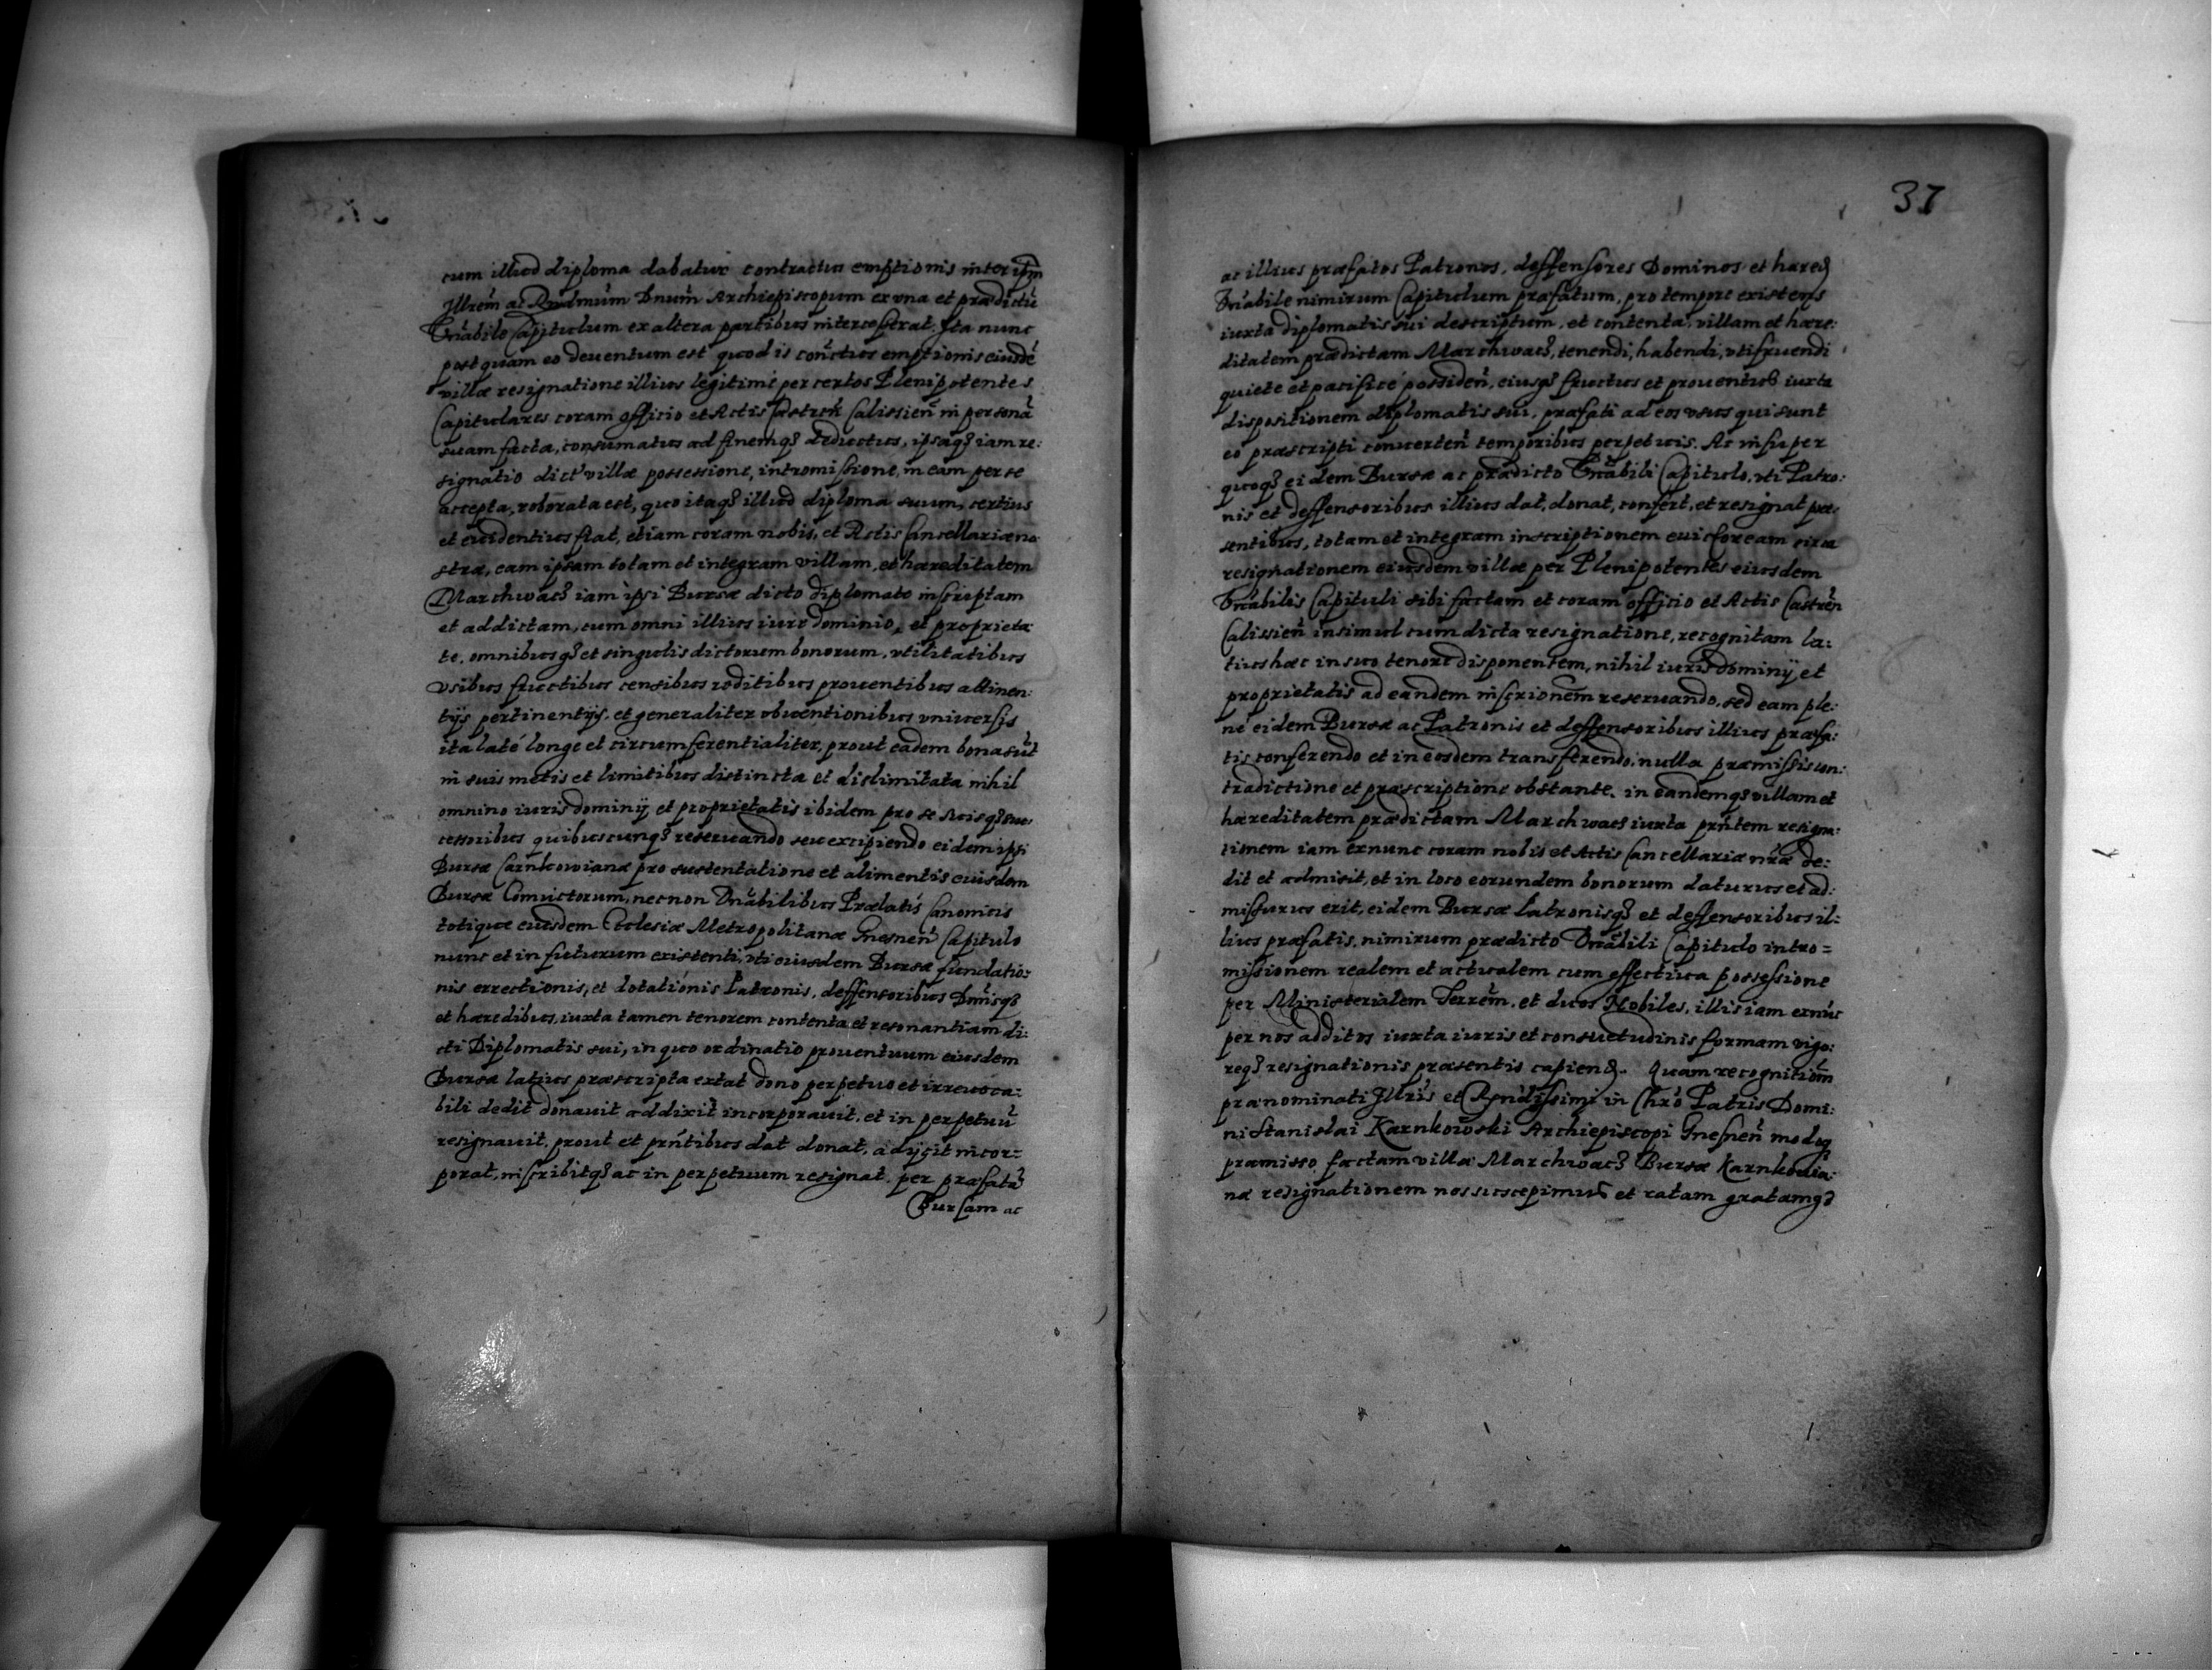 cum illud diploma dabatur contractus emptionis inter ipm̃
Illrem̃ ac Rndmum̃ Dnum̃ Archiepiscopum ex vna et prædictũ
Vnãbile Capitulum ex altera partibus intercesserat. Ita nunc
post quam eo deuentum est quod is conctus emptionis eiusdẽ
villæ resignatione illius legitimè per certos Plenipotentes
Capitulares coram officio et Actis Castreñ Calissieñ in personã
suam facta, consumatus ad finemq3 deductus, ipsaq3 iam re:
signatio dict villæ possessione, intromissione, in eam per se
accepta, roborata est, quo itaq3 illud diploma suum, certius
et euidentius fiat, etiam coram nobis, et Actis Cancellariæ no
stræ, eam ipsam totam et integram villam, et hæreditatem
Marchwacz iam ipsi Bursæ dicto diplomate inscriptam
et addictam, cum omni illius iure dominio, et proprieta
te, omnibusq3 et singulis dictorum bonorum, vtilitatibus
vsibus fructibus censibus reditibus prouentibus attinen:
tijs pertinentijs, et generaliter obuentionibus vniuersis
ita latè longe et circumferentialiter, prout eadem bona sũt
in suis metis et limitibus distincta et dislimitata nihil
omnino iuris dominij et proprietatis ibidem pro se suisq3 suc
cessoribus quibuscunq3 reseruando seu excipiendo eidem ipsi
Bursæ Carnkowianæ pro sustentatione et alimentis eiusdem
Bursæ Conuictorum, necnon Vnãbilibus Prælatis Canonicis
totique eiusdem Ecclesiæ Metropolitanæ Gnesneñ Capitulo
nunc et in futurum existenti, vti eiusdem Bursæ fundatio:
nis errectionis, et dotationis Patronis, deffensoribus Dnisq3
et hæredibus, iuxta tamen tenorem contenta et resonantiam di:
cti Diplomatis sui, in quo ordinatio prouentuum eiusdem
Bursæ latius præscripta extat dono perpetuo et irreuoca:
bili dedit donauit addixit incorporauit, et in perpetuũ
resignauit, prout et prñtibus dat donat, adijcit incor=
porat, inscribitq3 ac in perpetuum resignat, per præfatã
Bursam ac
37
ac illius præfatos Patronos, deffensores Dominos et hæred
Vnãbile nimirum Capitulum præfatum, pro tempore existens
iuxta diplomatis sui descriptum, et contenta, villam et hære:
ditatem prædictam Marchwacz, tenendi, habendi, vtifruendi
quiete et pacificè possideñ, eiusq3 fructus et prouentus iuxta
dispositionem diplomatis sui, præfati ad eos vsus qui sunt
eo præscripti conuerteñ temporibus perpetuis. Ac insuper
quoq3 eidem Bursæ ac prædicto Vnãbili Capitulo, vti Patro:
nis et deffensoribus illius dat, donat, confert, et resignat præ
sentibus, totam et integram inscriptionem euictoream circa
resignationem eiusdem villæ per Plenipotentes eiusdem
Vnãbilis Capituli sibi factam et coram officio et Actis Castreñ
Calissieñ insimul cum dicta resignatione, recognitam la:
tius hæc in suo tenore disponentem, nihil iuris dominij et
proprietatis ad eandem inscrionem reseruando, sed eam ple:
ne eidem Bursæ ac Patronis et deffensoribus illius præfa:
tis conferendo et in eosdem transferendo, nulla præmissis con:
tradictione et præscriptione obstante, in eandemq3 villam et
hæreditatem prædictam Marchwacz iuxta prñtem resigna:
tionem iam exnunc coram nobis et Actis Cancellariæ nræ de:
dit et admisit, et in loco eorundem bonorum daturus et ad:
missurus erit, eidem Bursæ Patronisq3 et deffensoribus il:
lius præfatis, nimirum prædicto Vnãbili Capitulo intro=
missionem realem et actualem cum effectiua possessione
per Ministerialem Terrem̃, et duos Nobiles, illis iam exnũc
per nos additos iuxta iuris et consuetudinis formam vigo:
req3 resignationis præsentis capiend. Quam recognitiom̃
prænominati Illris et Rndissimi in Chrõ Patris Domi:
ni Stanislai Karnkowski Archiepiscopi Gnesneñ modoq3
præmisso factam villæ Marchwacz Bursæ Karnkouia:
næ resignationem nos suscepimus et ratam gratamq3